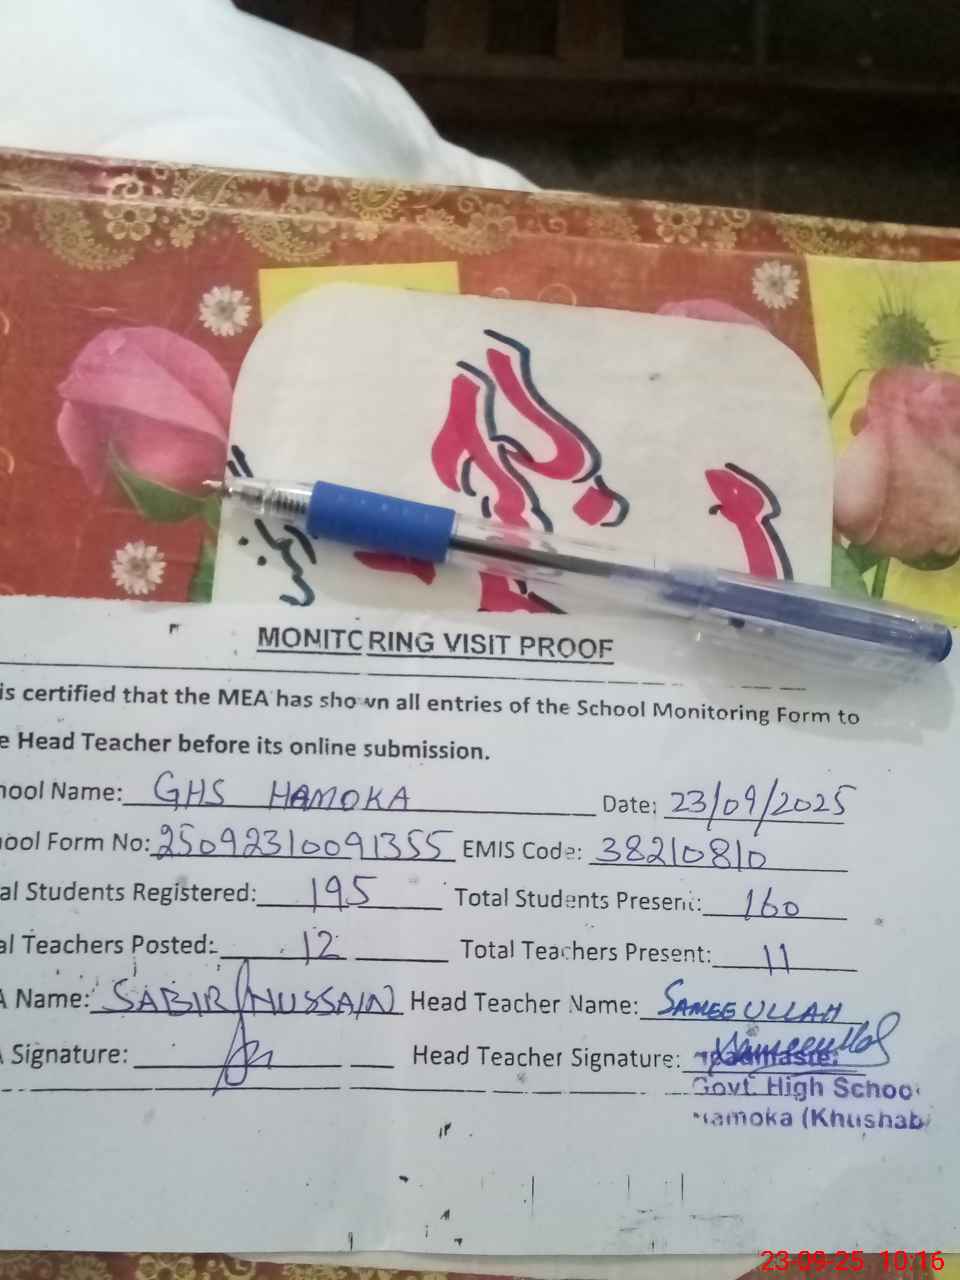 MONITORING VISIT PROOF
is certified that the MEA has shown all entries of the School Monitoring Form to
e Head Teacher before its online submission.
hool Name: GHS HAMOKA Date: 23/09/2025
hool Form No: 25092310091355 EMIS Code: 38210810
al Students Registered: 195 Total Students Present: 160
al Teachers Posted: 12 Total Teachers Present: 11
A Name: SABIR HUSSAIN Head Teacher Name: SAMEEULLAH
A Signature: Head Teacher Signature: Sameeullah
Headmaster
Govt. High Schoo
Hamoka (Khushab
23-09-25 10:16